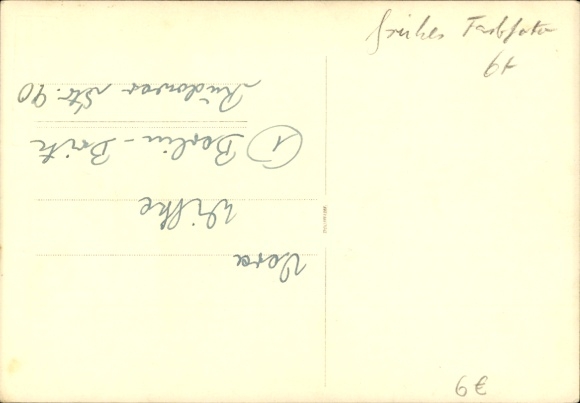 frühes Farbfoto
6t
Vera
Wilke
① Berlin - Britz
Rudower Str. 90
6€